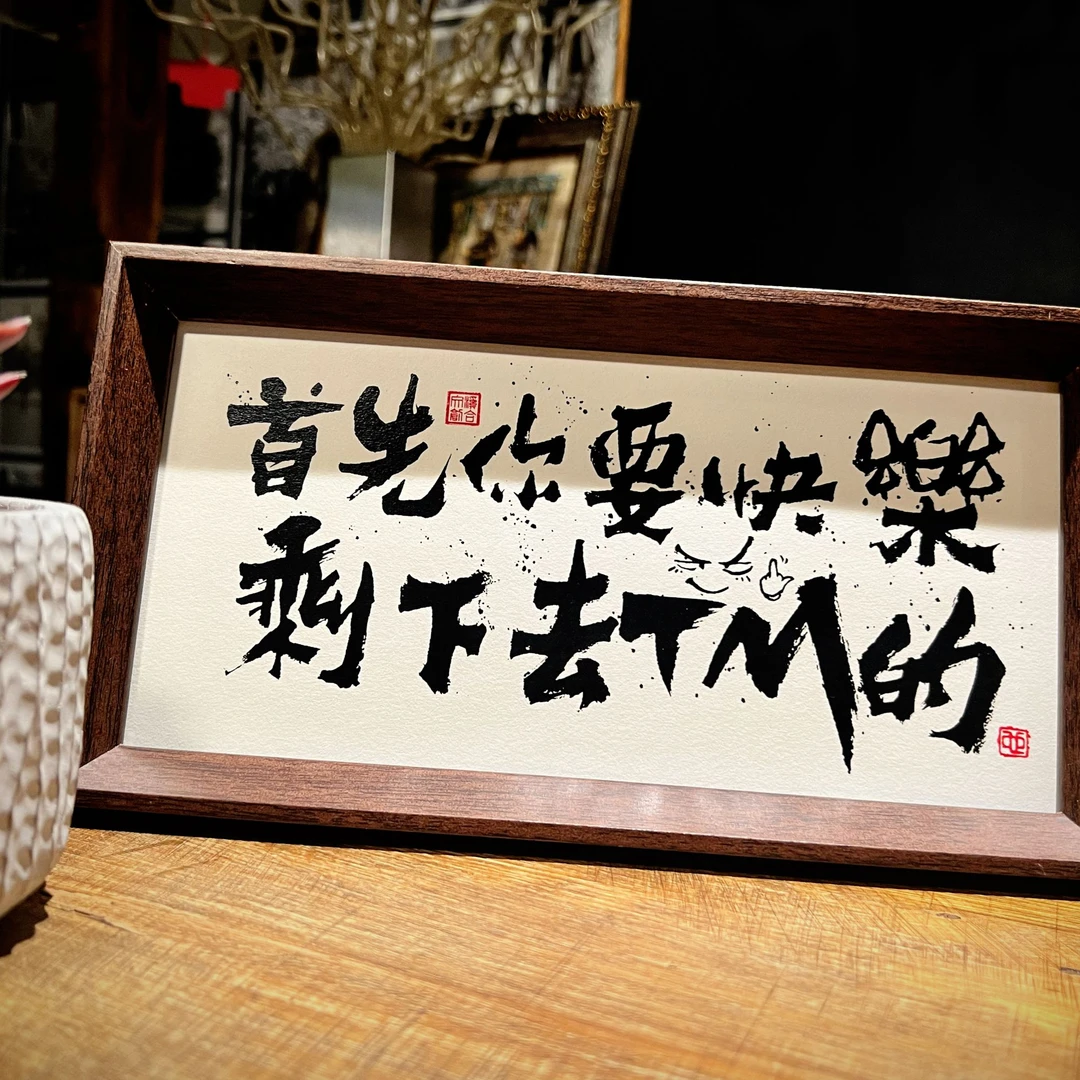 首先你要快樂
剩下去TM的